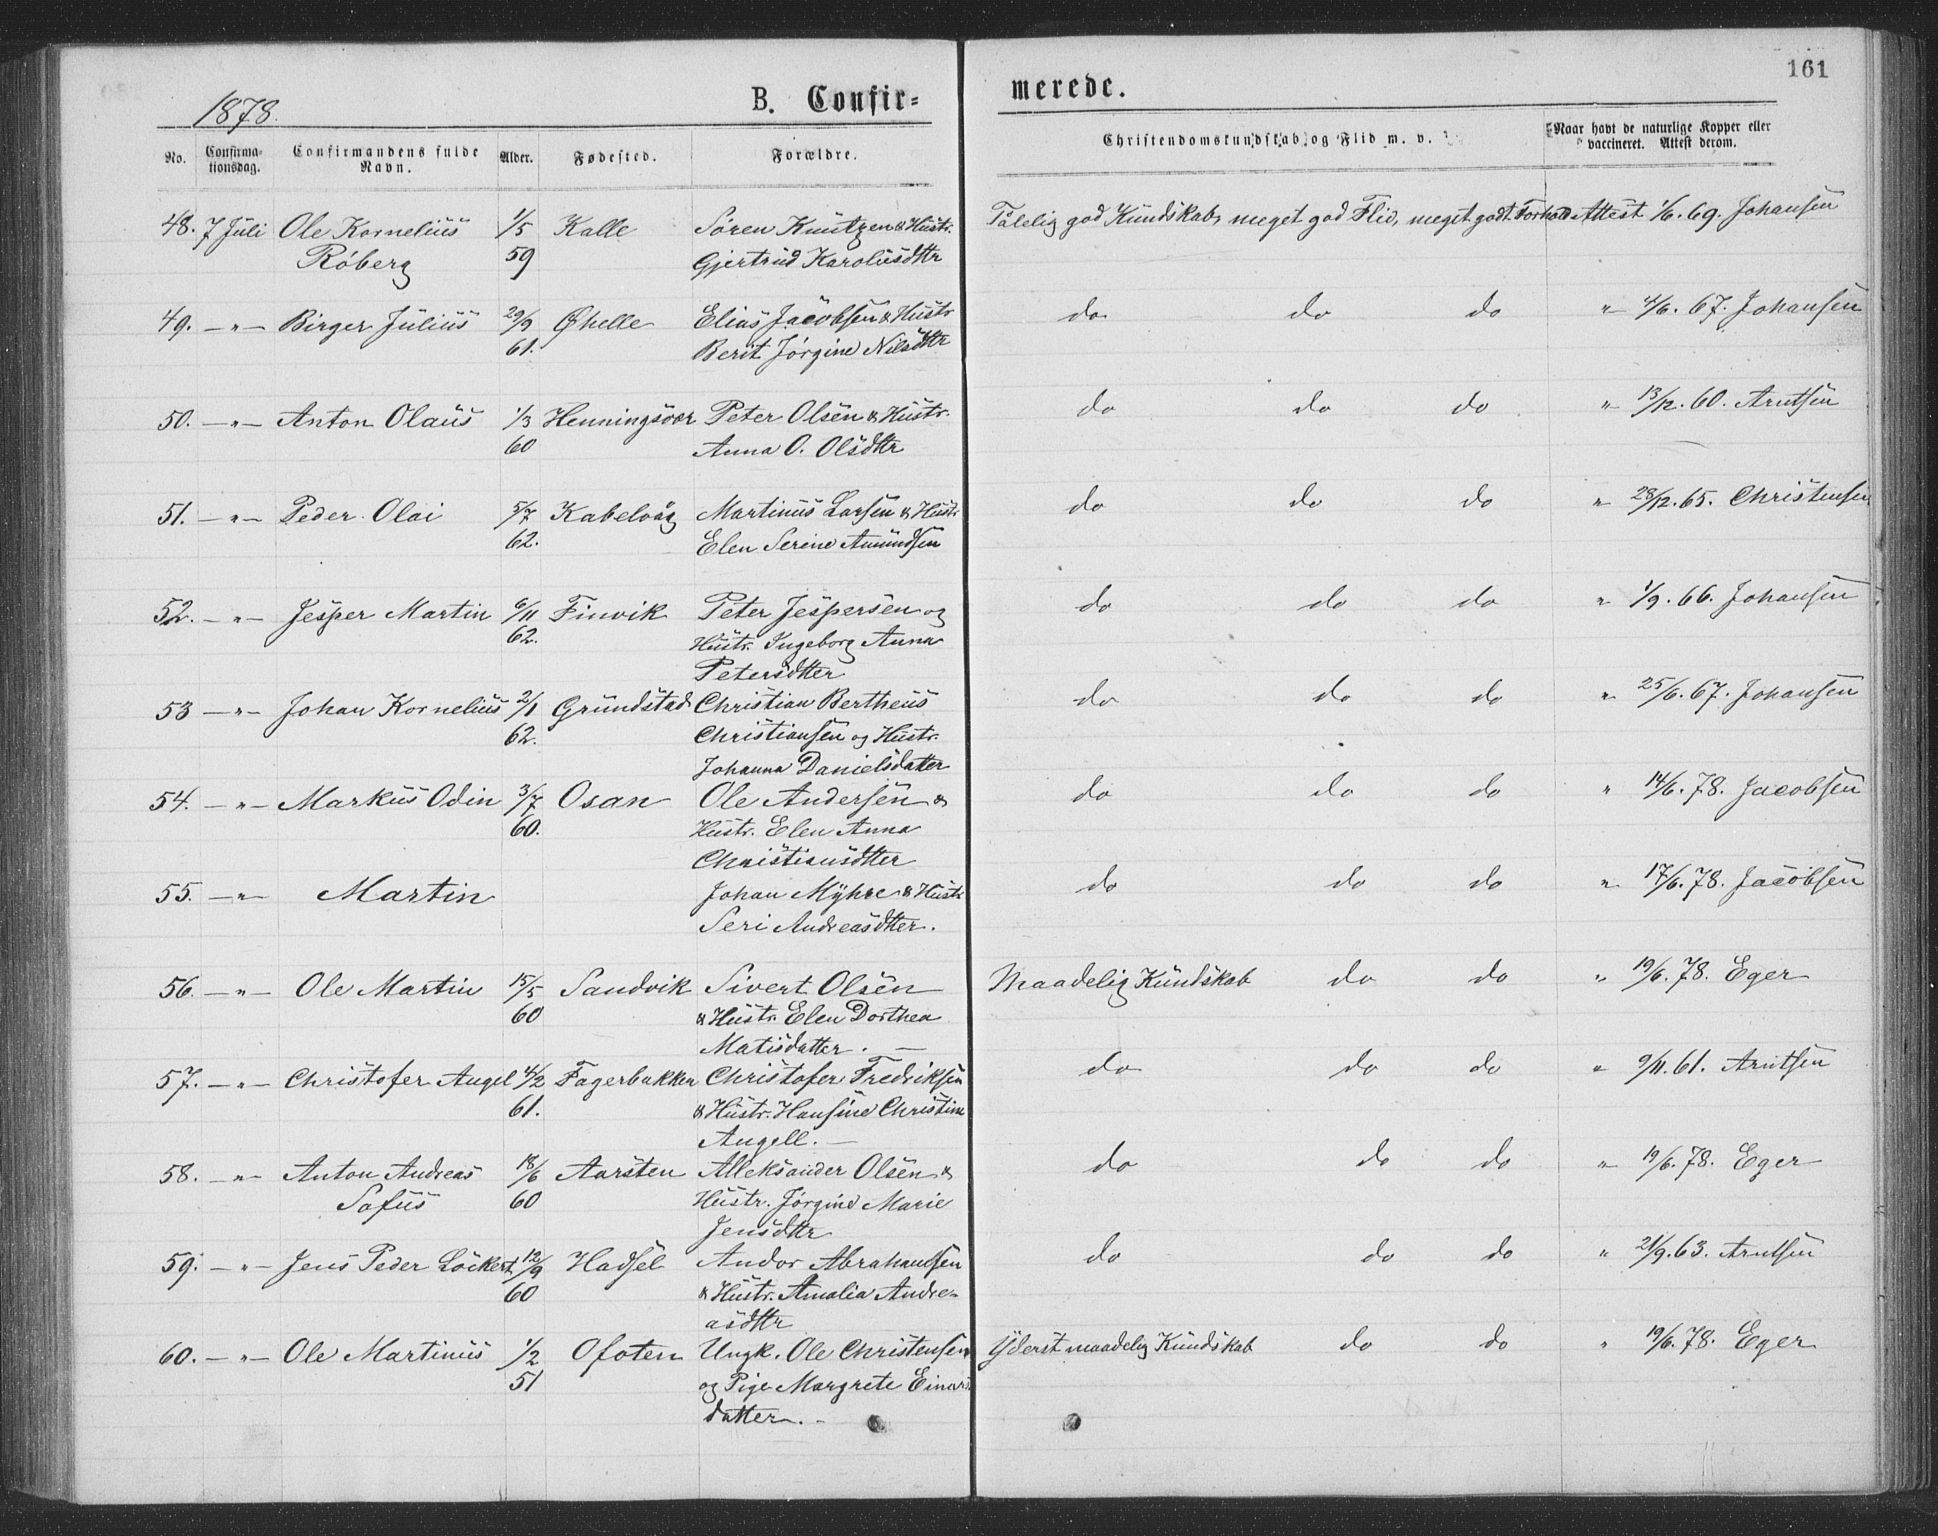 161
1878.
B. Confir-
merede.
No.
Confirma-
tionsdag.
Confirmandens fulde
Navn.
Alder.
Fødested.
Forældre.
Christendomskundskab og Flid m. v.
Naar havt de naturlige Kopper eller
vaccineret. Attest derom.
48. 7 Juli Ole Kornelius 1/5 Kalle Søren Knutzen & Hustr. Tålelig god Kundskab, meget god Flid, meget godt Forhold Attest 1/6. 69. Johansen
Röberg 59 Gjertrud Karolusdttr
49. – " – Birger Julius 29/9 Øhelle Elias Jacobsen & Hustr do do do " 4/6. 67. Johansen
61. Berit Jørgine Nilsdttr
50. – " – Anton Olaus 1/3 Henningsvær Peter Olsen & Hustr. do do do " 13/12. 60. Arntsen
60 Anna O. Olsdttr
51. – " – Peder Olai 5/7 Kabelvåg Martinus Larsen & Hustr do do do " 28/12. 65. Christensen
62. Elen Serine Amundsen
52. – " – Jesper Martin 6/11 Finvik Peter Jespersen og do do do " 1/9. 66. Johansen
62. Hustr. Ingeborg Anna
Petersdtter
53 – " – Johan Kornelius 2/1 Grundstad Christian Bertheus do do do " 25/6. 67. Johansen
62. Christiansen og Hustr.
Johanna Danielsdatter
54. – " – Markus Odin 3/7 Osan Ole Andersen & do do do " 14/6. 78. Jacobsen
60. Hustr. Elen Anna
Christiansdtter
55. – " – Martin Johan Myhre & Hustr do do do " 17/6. 78. Jacobsen
Seri Andreasdtter.
56. – " – Ole Martin 15/5 Sandvik Sivert Olsen Maadelig Kundskab do do " 19/6. 78. Eger
60 & Hustr. Elen Dorthea
Matisdatter. –
57. – " – Christofer Angel 4/2 Fagerbakken Christofer Fredriksen do do do " 9/11. 61. Arntsen
61. & Hustr. Hansine Christine
Angell. –
58. – " – Anton Andreas 18/6 Aarsten Alleksander Olsen & do do do " 19/6. 78. Eger
Sofus 60 Hustr. Jørgine Marie
Jensdttr
59. – " – Jens Peder Löckert 12/9 Hadsel Andor Abrahamsen do do do " 21/9. 63. Arntsen
60 & Hustr. Amalia Andre-
asdttr
60. – " – Ole Martinus 1/2 Ofoten Ungk. Ole Christensen Yderst maadelig Kundskab do do " 19/6. 78. Eger
51 og Pige Margrete Einars
datter. –